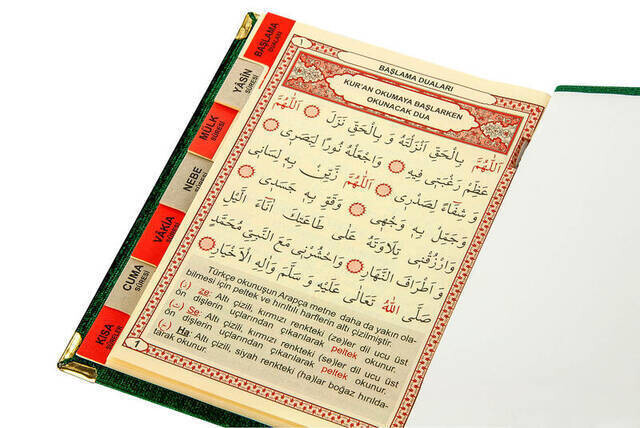 BAŞLAMA
DUALARI
YÂSİN
SÛRESİ
MÜLK
SÛRESİ
NEBE
SÛRESİ
VÂKIA
SÛRESİ
CUMA
SÛRESİ
KISA
SÛRELER
1
BAŞLAMA DUALARI
KUR'AN OKUMAYA BAŞLARKEN
OKUNACAK DUA
اَللّٰهُمَّ بِالْحَقِّ اَنْزَلْتَهُ وَ بِالْحَقِّ نَزَلَ اَللّٰهُمَّ
عَظِّمْ رَغْبَتٖى فٖيهِ وَاجْعَلْهُ نُورًا لِبَصَرٖى
وَ شِفَاءً لِصَدْرٖى اَللّٰهُمَّ زَيِّنْ بِهٖ لِسَانٖى
وَجَمِّلْ بِهٖ وَجْهٖى وَقَوِّ بِهٖ جَسَدٖى
وَارْزُقْنٖى تِلَاوَتَهُ عَلٰى طَاعَتِكَ اٰنَاءَ الَّيْلِ
وَ اَطْرَافَ النَّهَارِ وَاحْشُرْنٖى مَعَ النَّبِيِّ مُحَمَّدٍ
صَلَّى اللّٰهُ تَعَالٰى عَلَيْهِ وَ سَلَّمَ وَاٰلِهِ الْاَخْيَارِ
Türkçe okunuşun Arapça metne daha da yakın ola-
bilmesi için peltek ve hırıltılı harflerin altı çizilmiştir.
(ذ) ze: Altı çizili, kırmızı renkteki (ze)ler dil ucu üst
ön dişlerin uçlarından çıkarılarak peltek okunur.
(ث) Se: Altı çizili, kırmızı renkteki (se)ler dil ucu üst
ön dişlerin uçlarından çıkarılarak peltek okunur.
(خ) Ha: Altı çizili, siyah renkteki (ha)lar boğaz hırılda-
tılarak okunur.
1